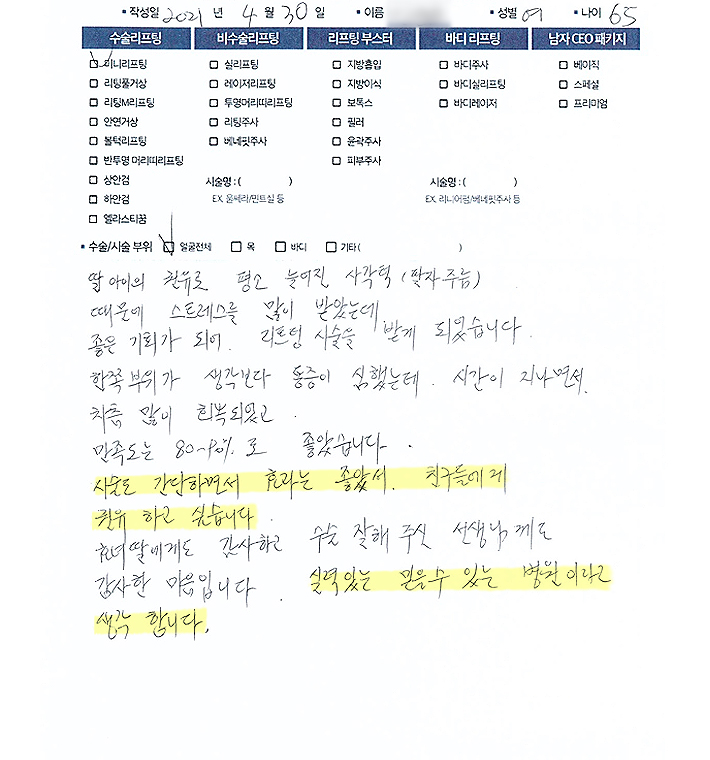 ▪ 작성일 2021 년 4 월 30 일 ▪ 이름 ▪ 성별 여 ▪ 나이 65
수술리프팅 비수술리프팅 리프팅 부스터 바디 리프팅 남자 CEO 패키지
미니리프팅 실리프팅 지방흡입 바디주사 베이직
리팅풀거상 레이저리프팅 지방이식 바디실리프팅 스페셜
리팅M리프팅 투명머리띠리프팅 보톡스 바디레이저 프리미엄
안면거상 리팅주사 필러
볼턱리프팅 베네핏주사 윤곽주사
반투명 머리띠리프팅 피부주사
상안검 시술명 : ( ) 시술명 : ( )
하안검 EX. 울쎄라/민트실 등 EX. 리니어펌/베네핏주사 등
엘라스티꿈
▪ 수술/시술 부위 얼굴전체 목 바디 기타 ( )
딸아이의 권유로 평소 늘어진 사각턱 (팔자주름)
때문에 스트레스를 많이 받았는데
좋은 기회가 되어. 리프팅 시술을 받게 되었습니다.
한쪽 부위가 생각보다 통증이 심했는데. 시간이 지나면서.
차츰 많이 회복되었고.
만족도는 80~90% 로 좋았습니다.
시술도 간단하면서 효과는 좋았서. 친구들에게
권유 하고 싶습니다
효녀딸에게도 감사하고 수술 잘해 주신 선생님께도
감사한 마음입니다. 실력있는 믿을수 있는 병원이라고
생각 합니다.